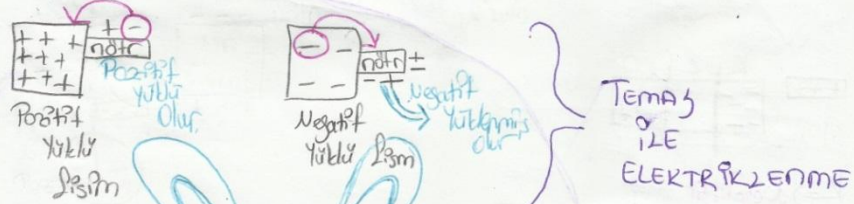 nötr
Pozitif
Yüklü
Olur.
Pozitif
Yüklü
Cisim
nötr
Negatif
Yüklenmiş
olur
Negatif
Yüklü Cisim
TEMAS
İLE
ELEKTRİKLENME